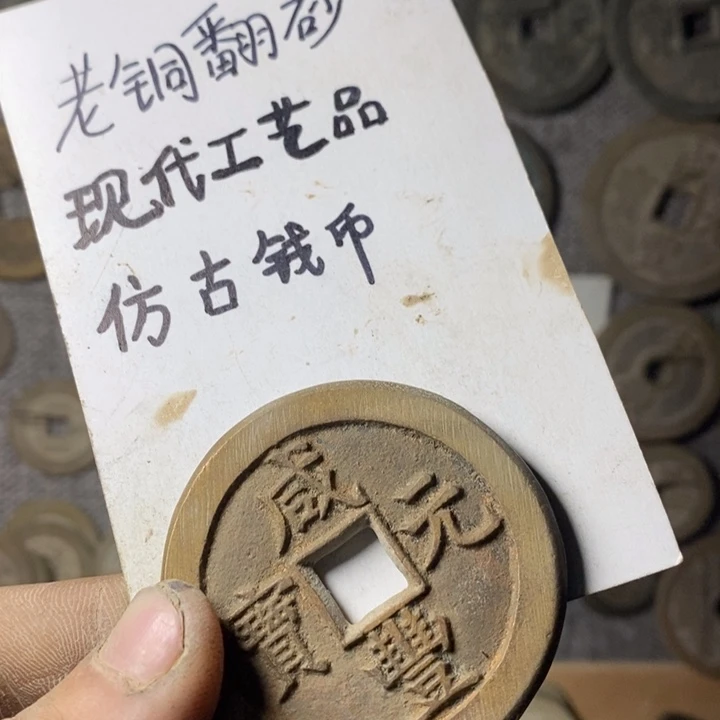 老铜翻砂
现代工艺品
仿古钱币
咸豐元寶